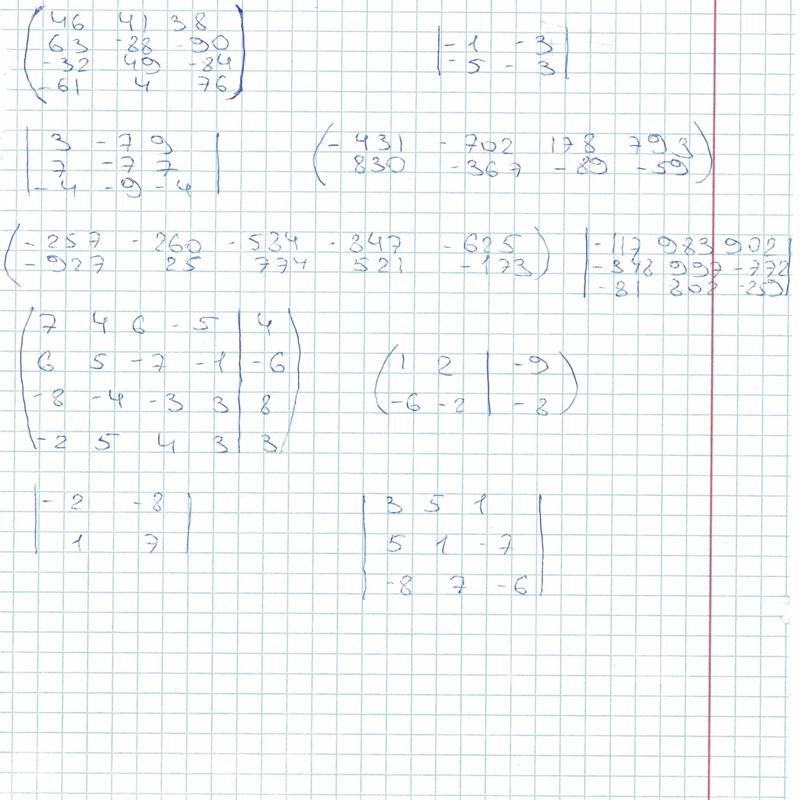 ( 46 41 38 )
( 63 -88 -90 )
( -32 49 -84 )
( -61 4 76 )
| -1 -3 |
| -5 -3 |
| 3 -7 9 |
| 7 -7 7 |
| -4 -9 -4 |
( -431 -702 178 793 )
( 830 -367 -89 -59 )
( -257 -260 -534 -347 -625 )
( -927 25 774 521 -173 )
| -117 983 902 |
| -348 997 -772 |
| -81 802 -259 |
( 7 4 6 -5 | 4 )
( 6 5 -7 -1 | -6 )
( -8 -4 -3 3 | 8 )
( -2 5 4 3 | 3 )
( 1 2 | -9 )
( -6 -2 | -8 )
| -2 -8 |
| 1 7 |
| 3 5 1 |
| 5 1 -7 |
| -8 7 -6 |